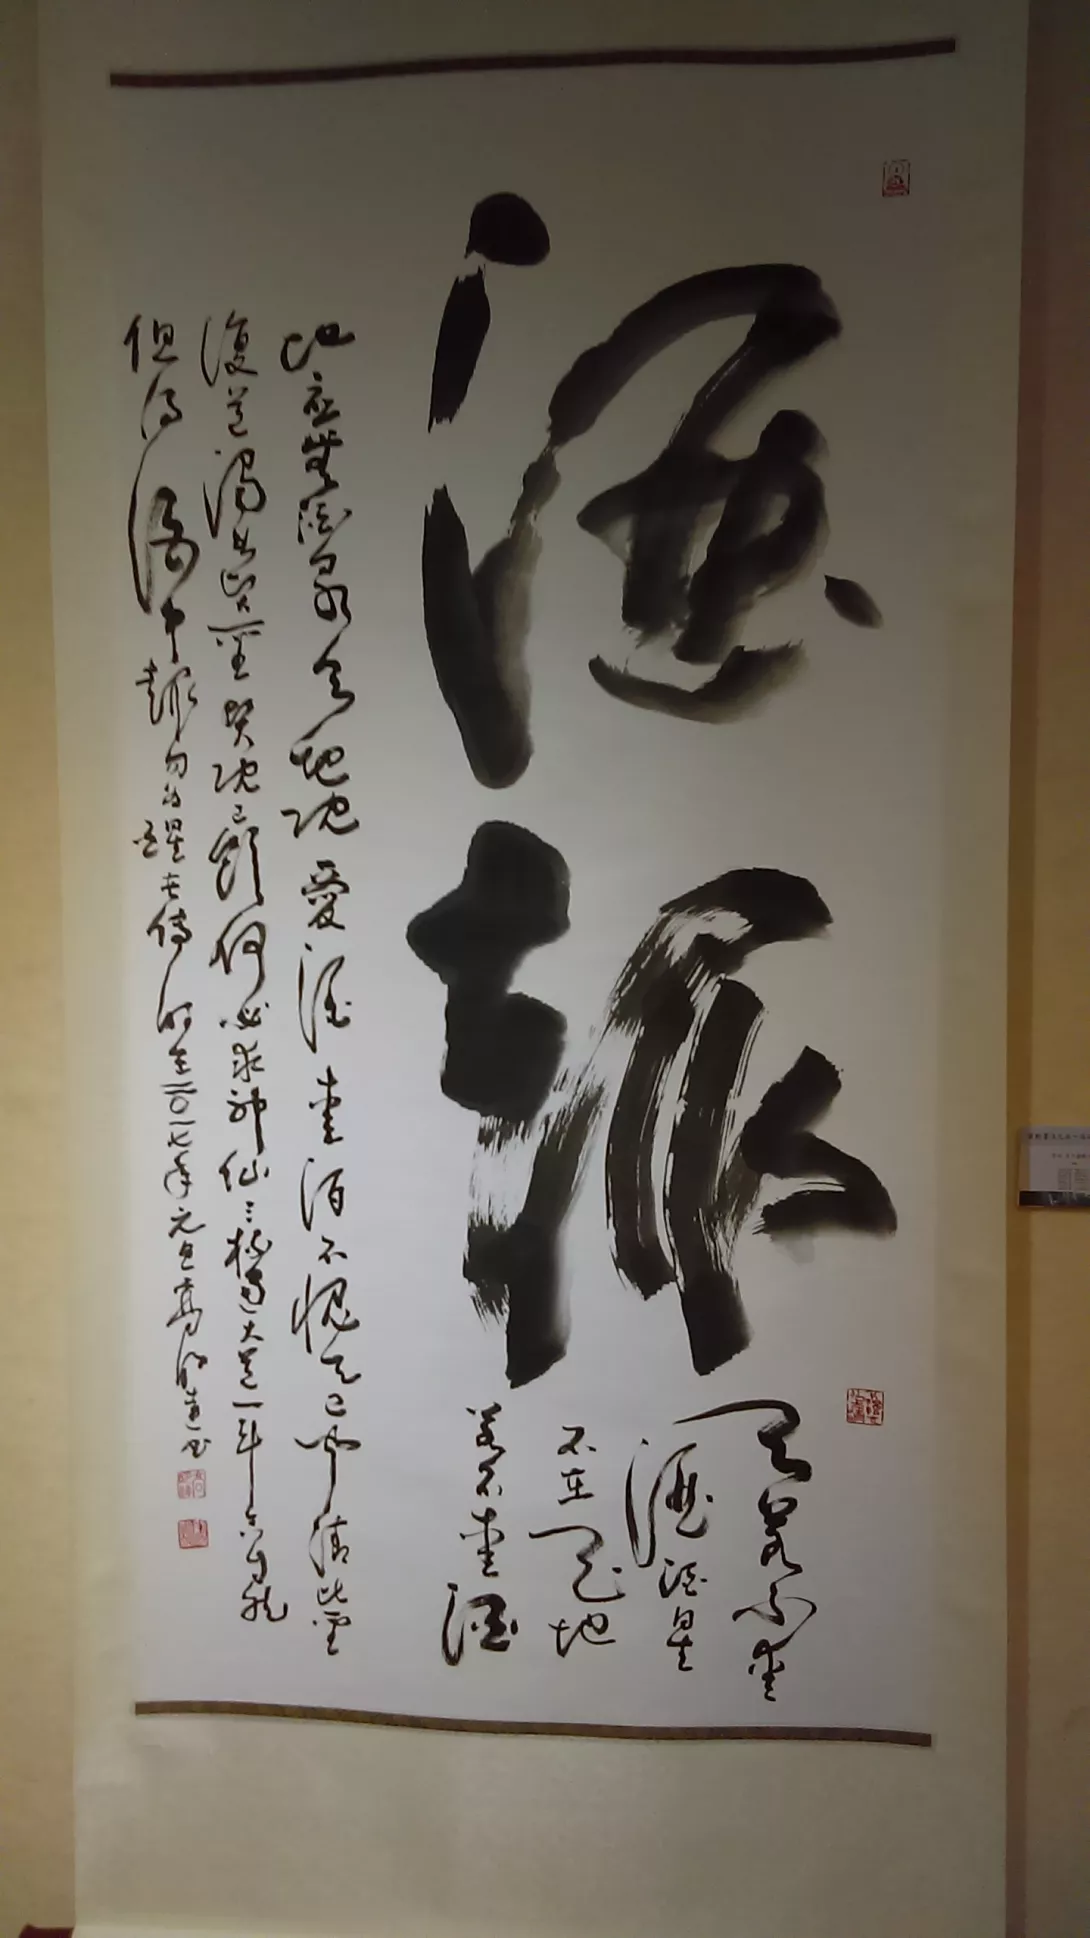 酒趣
天若不愛
酒酒星
不在天地
若不愛酒
地應無酒泉天地既愛酒愛酒不愧天已聞清比聖
復道濁如賢聖賢既已飲何必求神仙三杯通大道一斗合自然
但得酒中趣勿為醒者傳時在二〇一七年元旦高明書